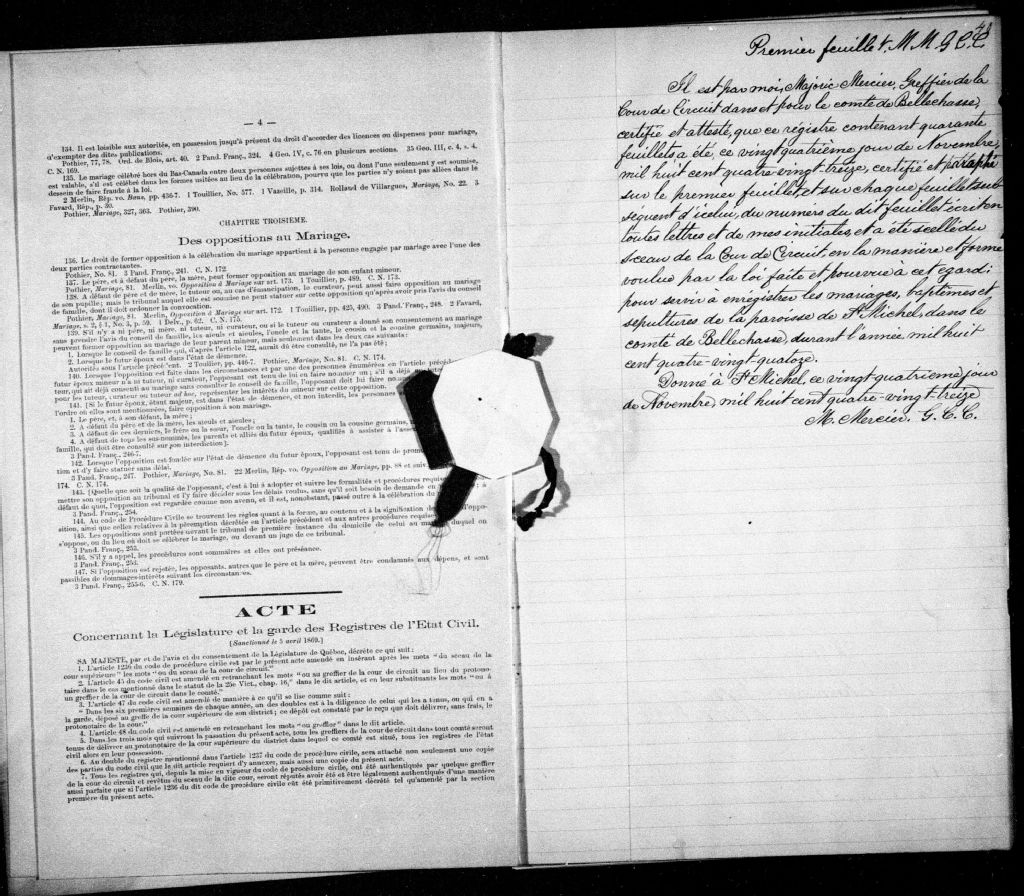 — 4 —
134. Il est loisible aux autorités, en possession jusqu'à présent du droit d'accorder des licences ou dispenses pour mariage,
d'exempter des dites publications.
Pothier, 77, 78. Ord. de Blois, art. 40. 2 Pand. Franç., 324. 4 Geo. IV, c. 76 en plusieurs sections. 35 Geo. III, c. 4, s. 4.
C. N. 169.
135. Le mariage célébré hors du Bas-Canada entre deux personnes sujettes à ses lois, ou dont l'une seulement y est soumise,
est valable, s'il est célébré dans les formes usitées au lieu de la célébration, pourvu que les parties n'y soient pas allées dans le
dessein de faire fraude à la loi.
2 Merlin, Rép. vo. Bans, pp. 436-7. 1 Touillier, No. 577. 1 Vazeille, p. 314. Rolland de Villargues, Mariage, No. 22. 3
Favard, Rép., p. 30.
Pothier, Mariage, 327, 363. Pothier, 390.
CHAPITRE TROISIEME.
Des oppositions au Mariage.
136. Le droit de former opposition à la célébration du mariage appartient à la personne engagée par mariage avec l'une des
deux parties contractantes.
Pothier, No. 81. 3 Pand. Franç., 241. C. N. 172.
137. Le père, et à défaut du père, la mère, peut former opposition au mariage de son enfant mineur.
Pothier, Mariage, 81. Merlin, vo. Opposition à Mariage sur art. 173. 1 Touillier, p. 489. C. N. 173.
138. A défaut de père et de mère, le tuteur ou, au cas d'émancipation, le curateur, peut aussi faire opposition au mariage
de son pupille; mais le tribunal auquel elle est soumise ne peut statuer sur cette opposition qu'après avoir pris l'avis du conseil
de famille, dont il doit ordonner la convocation.
Pothier, Mariage, 81. Merlin, Opposition à Mariage sur art. 172. 1 Touillier, pp. 423, 490. 3 Pand. Franç., 248. 2 Favard,
Mariage, s. 2, § 1, No. 3, p. 59. 1 Delv., p. 62. C. N. 175.
139. S'il n'y a ni père, ni mère, ni tuteur, ni curateur, ou si le tuteur ou curateur a donné son consentement au mariage
sans prendre l'avis du conseil de famille, les aïeuls et aïeules, l'oncle et la tante, le cousin et la cousine germains, majeurs,
peuvent former opposition au mariage de leur parent mineur, mais seulement dans les deux cas suivants:
1. Lorsque le conseil de famille qui, d'après l'article 122, aurait dû être consulté, ne l'a pas été;
2. Lorsque le futur époux est dans l'état de démence.
Autorités sous l'article précé'ent. 2 Touillier, pp. 446-7. Pothier, Mariage, No. 81. C. N. 174.
140. Lorsque l'opposition est faite dans les circonstances et par une des personnes énumérées en l'article précéd
futur époux mineur n'a ni tuteur, ni curateur, l'opposant est tenu de lui en faire nommer un; s'il a déjà
teur, qui ait déjà consenti au mariage sans consulter le conseil de famille, l'opposant doit lui faire nom
pour les tuteur, curateur ou tuteur ad hoc, représenter les intérêts du mineur sur cette opposition.
141. [Si le futur époux, étant majeur, est dans l'état de démence, et non interdit, les personnes
l'ordre où elles sont mentionnées, faire opposition à son mariage.
1. Le père, et, à son défaut, la mère;
2. A défaut du père et de la mère, les aïeuls et aïeules;
3. A défaut de ces derniers, le frère ou la sœur, l'oncle ou la tante, le cousin ou la cousine germains,
4. A défaut de tous les sus-nommés, les parents et alliés du futur époux, qualifiés à assister à l'asse
famille, qui doit être consulté sur son interdiction].
3 Pand. Franç., 246-7.
142. Lorsque l'opposition est fondée sur l'état de démence du futur époux, l'opposant est tenu de prom
tion et d'y faire statuer sans délai.
3 Pand. Franç., 247. Pothier, Mariage, No. 81. 22 Merlin, Rép. vo. Opposition au Mariage, pp. 88 et suiv
174. C. N. 174.
143. [Quelle que soit la qualité de l'opposant, c'est à lui à adopter et suivre les formalités et procédures requises
mettre son opposition au tribunal et l'y faire décider sous les délais voulus, sans qu'il soit besoin de demande en à
défaut de quoi, l'opposition est regardée comme non avenu, et il est, nonobstant, passé outre à la célébration du
3 Pand. Franç., 254.
144. Au code de Procédure Civile se trouvent les règles quant à la forme, au contenu et à la signification de l'oppo-
sition, ainsi que celles relatives à la péremption décrétée en l'article précédent et aux autres procédures requises.
145. Les oppositions sont portées devant le tribunal de première instance du domicile de celui au duquel on
s'oppose, ou du lieu où doit se célébrer le mariage, ou devant un juge de ce tribunal.
3 Pand. Franç., 253.
146. S'il y a appel, les procédures sont sommaires et elles ont préséance.
3 Pand. Franç., 253.
147. Si l'opposition est rejetée, les opposants, autres que le père et la mère, peuvent être condamnés aux dépens, et sont
passibles de dommages-intérêts suivant les circonstances.
3 Pand. Franç., 255-6. C. N. 179.
ACTE
Concernant la Législature et la garde des Registres de l'Etat Civil.
[Sanctionné le 5 avril 1869.]
SA MAJESTE, par et de l'avis et du consentement de la Législature de Québec, décrète ce qui suit:
1. L'article 1236 du code de procédure civile est par le présent acte amendé en insérant après les mots "du sceau de la
cour supérieure" les mots "ou du sceau de la cour de circuit."
2. L'article 45 du code civil est amendé en retranchant les mots "ou au greffier de la cour de circuit au lieu du protono-
taire dans le cas mentionné dans le statut de la 25e Vict., chap. 16," dans le dit article, et en leur substituants les mots "ou à
un greffier de la cour de circuit dans le comté."
3. L'article 47 du code civil est amendé de manière à ce qu'il se lise comme suit:
"Dans les six premières semaines de chaque année, un des doubles est à la diligence de celui qui les a tenus, ou qui en a
la garde, déposé au greffe de la cour supérieure de son district; ce dépôt est constaté par le reçu que doit délivrer, sans frais, le
protonotaire de la cour."
4. L'article 48 du code civil est amendé en retranchant les mots "ou greffier" dans le dit article.
5. Dans les trois mois qui suivront la passation du présent acte, tous les greffiers de la cour de circuit dans tout comté seront
tenus de délivrer au protonotaire de la cour supérieure du district dans lequel ce comté est situé, tous les registres de l'état
civil alors en leur possession.
6. Au double du registre mentionné dans l'article 1237 du code de procédure civile, sera attaché non seulement une copie
des parties du code civil que le dit article requiert d'y annexer, mais aussi une copie du présent acte.
7. Tous les registres qui, depuis la mise en vigueur du code de procédure civile, ont été authentiqués par quelque greffier
de la cour de circuit et revêtus du sceau de la dite cour, seront réputés avoir été et être légalement authentiqués d'une manière
aussi parfaite que si l'article 1236 du dit code de procédure civile eût été primitivement décrété tel qu'amendé par la section
première du présent acte.
Premier feuillet. M. M. G. C. C.
Il est par moi, Majoric Mercier, Greffier de la
Cour de Circuit dans et pour le comté de Bellechasse,
certifié et attesté, que ce régistre contenant quarante
feuillets a été, ce vingt quatrième jour de Novembre,
mil huit cent quatre vingt-treize, certifié et paraphé
sur le premier feuillet et sur chaque feuillet sub-
séquent d'icelui, du numéro du dit feuillet écrit en
toutes lettres et de mes initiales, et a été scellé du
sceau de la Cour de Circuit, en la manière et forme
voulue par la loi faite et pourvue à cet égard:
pour servir à enrégistrer les mariages, baptêmes et
sépultures de la paroisse de St. Michel, dans le
comté de Bellechasse, durant l'année mil huit
cent quatre-vingt-quatorze.
Donné à St. Michel, ce vingt quatrième jour
de Novembre, mil huit cent quatre-vingt-treize
M. Mercier. G. C. C.